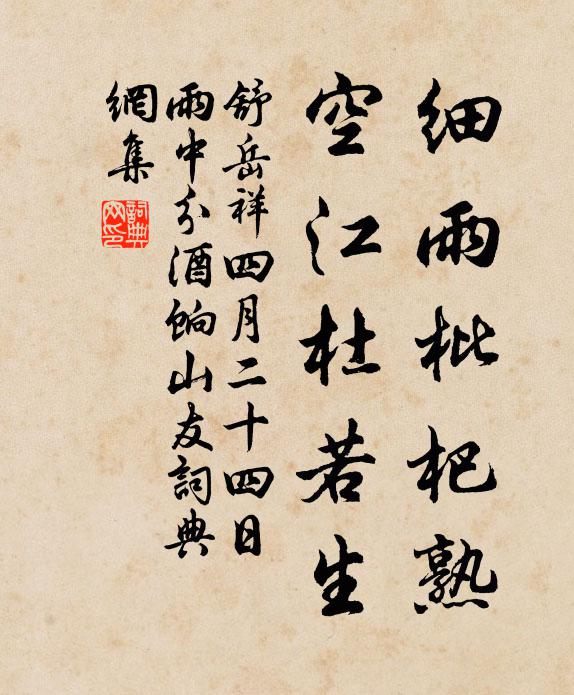 細雨枇杷熟
空江杜若生
舒岳祥四月二十四日
雨中分酒餉山友詞典
網集
詞典
网印